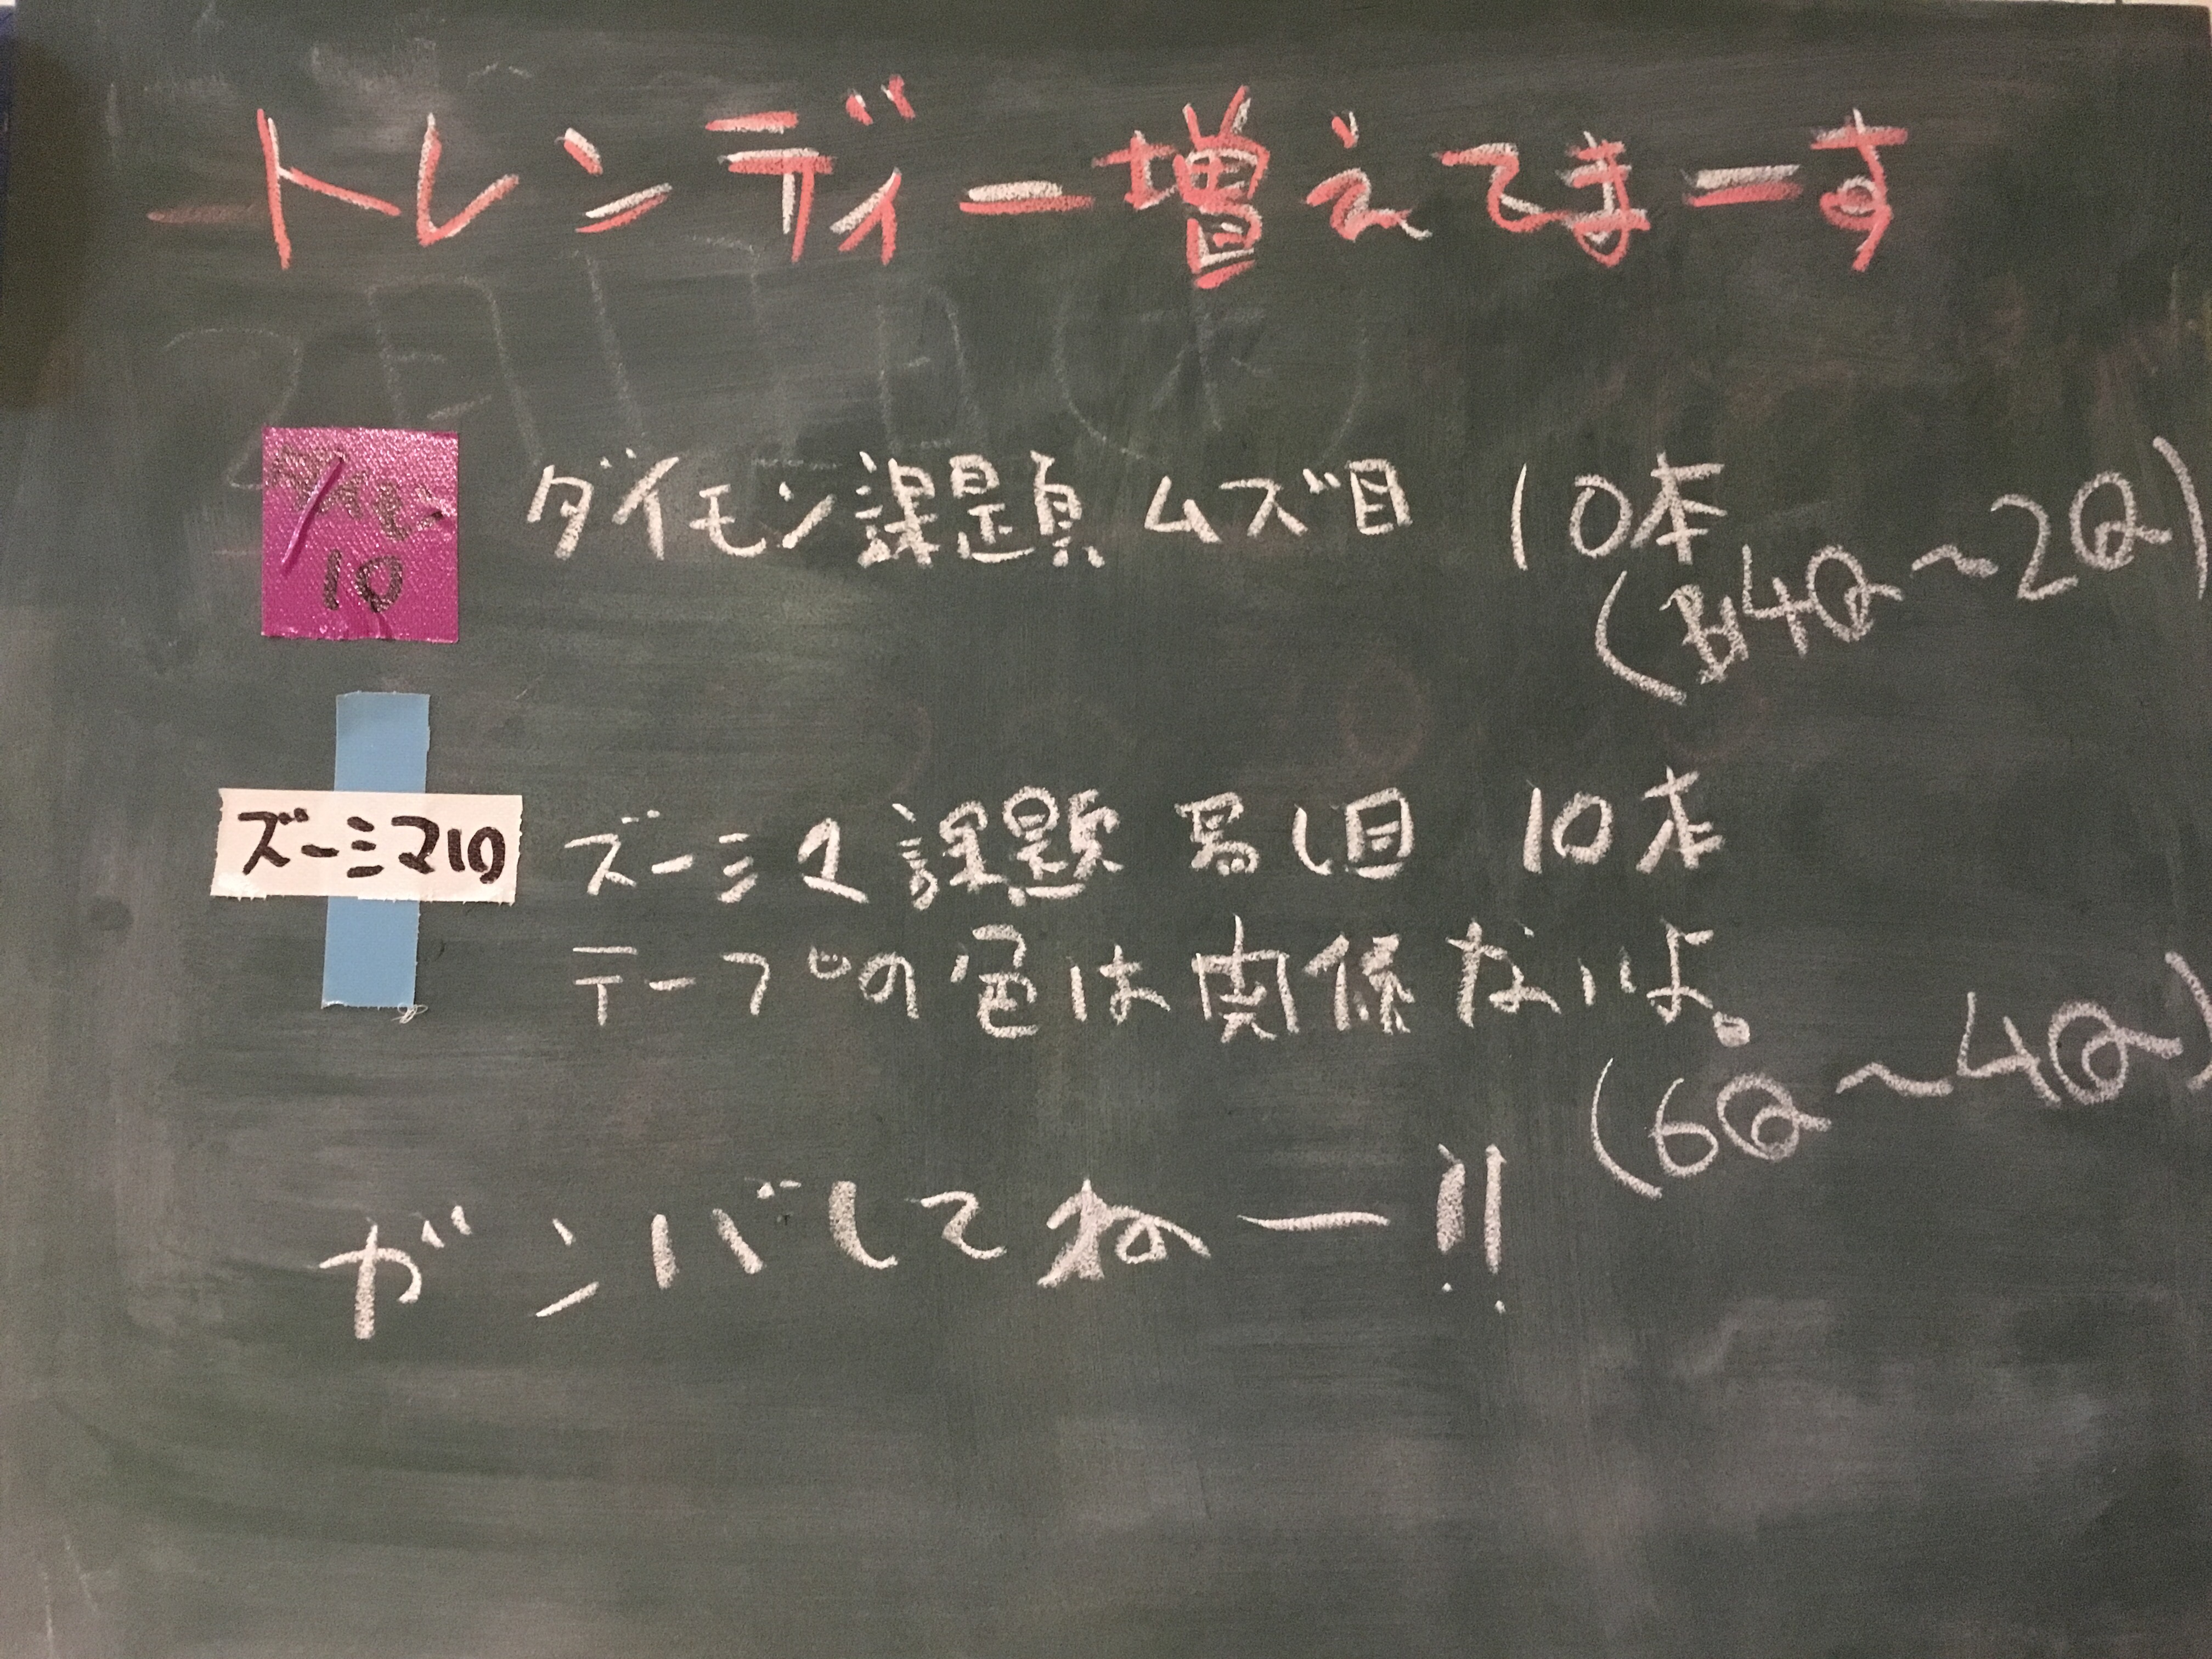 トレンディー増えてまーす
ダイモン
10
ダイモン課題 ムズ目 10本
(4Q〜2Q)
ズーミマ10
ズーミマ課題 易し目 10本
テープの色は関係ないよ。
(6Q〜4Q)
ガンバしてねー!!